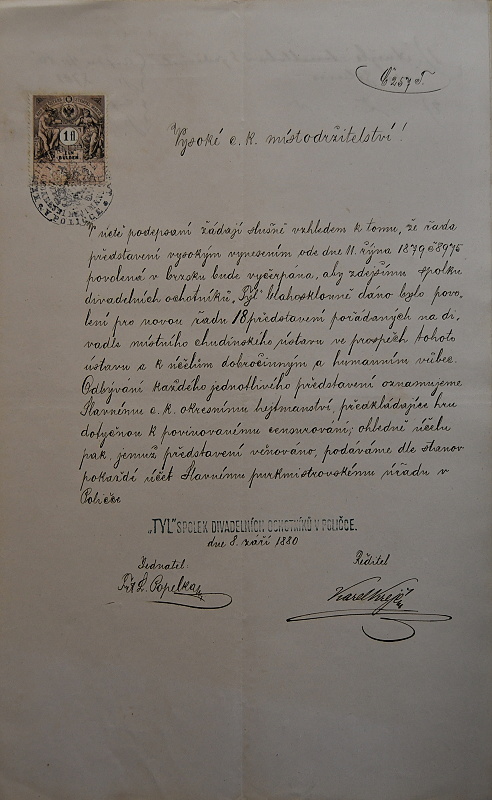 Č 257 T.
1 fl
GULDEN
POLICE
Vysoké c. k. místodržitelství!
V úctě podepsaní žádají slušně vzhledem k tomu, že řada
představení vysokým vynesením ode dne 11. října 1879 č 8975
povolená v brzsku bude vyčerpána, aby zdejšímu spolku
divadelních ochotníků „Tyl" blahosklonně dáno bylo povo-
lení pro novou řadu 18 představení pořádaných na di-
vadle místního chudinského ústavu ve prospěch tohoto
ústavu a k účelům dobročinným a humanním vůbec.
Odbývání každého jednotlivého představení oznamujeme
slavnému c. k. okresnímu hejtmanství, předkládajíce hru
dotyčnou k povinovanému censurování; ohledně účelu
pak, jemuž představení věnováno, podáváme dle stanov
pokaždé účet slavnému purkmistrovskému úřadu v
Poličce
„TYL" SPOLEK DIVADELNÍCH OCHOTNÍKŮ V POLIČCE.
dne 8. září 1880
Jednatel: Ředitel
Popelka Karel Krejčí